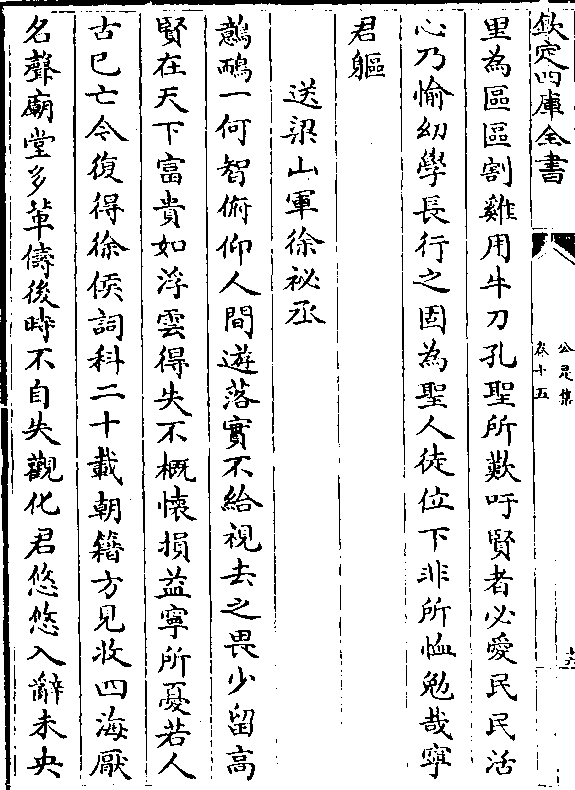 欽定四庫全書
公是集
卷十五
里為區區割雞用牛刀孔聖所歎吁賢者必愛民民活
心乃愉幼學長行之固為聖人徒位下非所恤勉哉寧
君軀
送梁山軍徐祕丞
鷾鴯一何智俯仰人間遊落實不給視去之畏少留高
賢在天下富貴如浮雲得失不概懷損益寧所憂若人
古已亡今復得徐侯詞科二十載朝籍方見收四海厭
名聲廟堂多輩儔後時不自失觀化君悠悠入辭未央